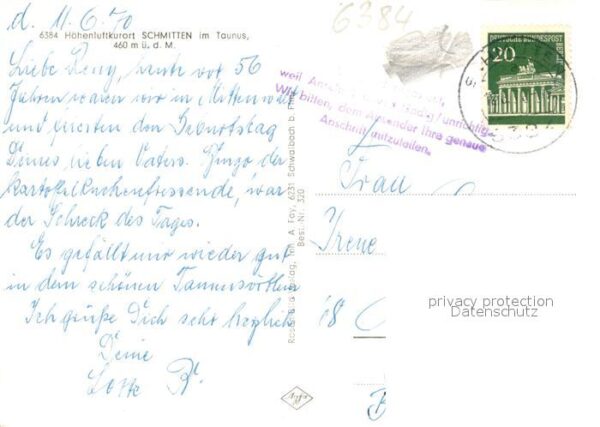 d. 11.6.70
6384
6384 Höhenluftkurort SCHMITTEN im Taunus,
460 m ü. d. M.
Liebe Reny, heute vor 56
Jahren waren wir in Mittenwald
und feierten den Geburtstag
Deines lieben Vaters. Zingo der
kartoffelkuchenfressende, war
der Schreck des Tages.
Es gefällt mir wieder gut
in dem schönen
Ich grüße Dich sehr herzlich
Deine
Lotte B.
6231 Schwalbach b.
Best.-Nr. 320
weil
unrichtig
Wir bitten, dem Absender Ihre genaue
Anschrift mitzuteilen.
DEUTSCHE BUNDESPOST
BERLIN
20
Frau
Irene
privacy protection
Datenschutz